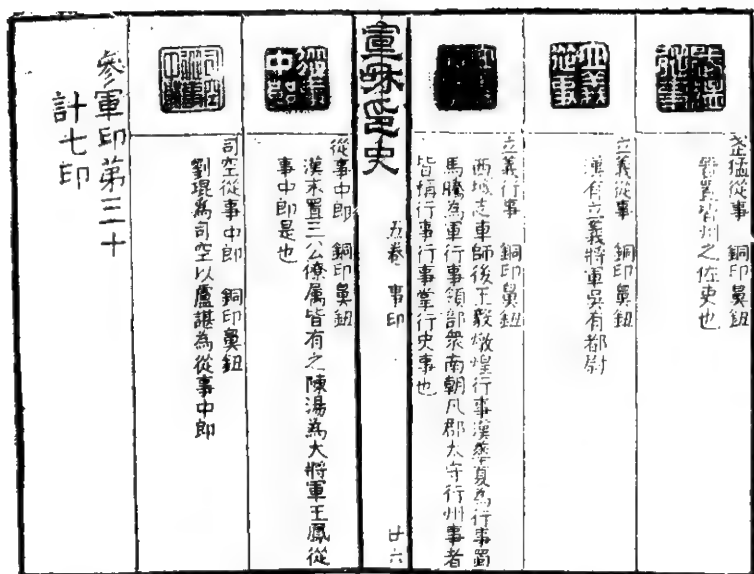 猛從事　銅印鼻鈕
皆州之佐吏也
立義從事　銅印鼻鈕
漢有立義將軍吳有都尉
立義行事　銅印鼻鈕
西域志車師後王殺燉煌行事漢為行事蜀
馬騰為軍行事領部衆南朝凡郡太守行州事者
皆稱行事行事掌行史事也
宣和印史　五卷　事印　廿六
從事中郎　銅印鼻鈕
漢末置三公僚屬皆有之陳湯為大將軍王鳳從
事中郎是也
司空從事中郎　銅印鼻鈕
劉琨為司空以盧諶為從事中郎
參軍印第三十
計七印